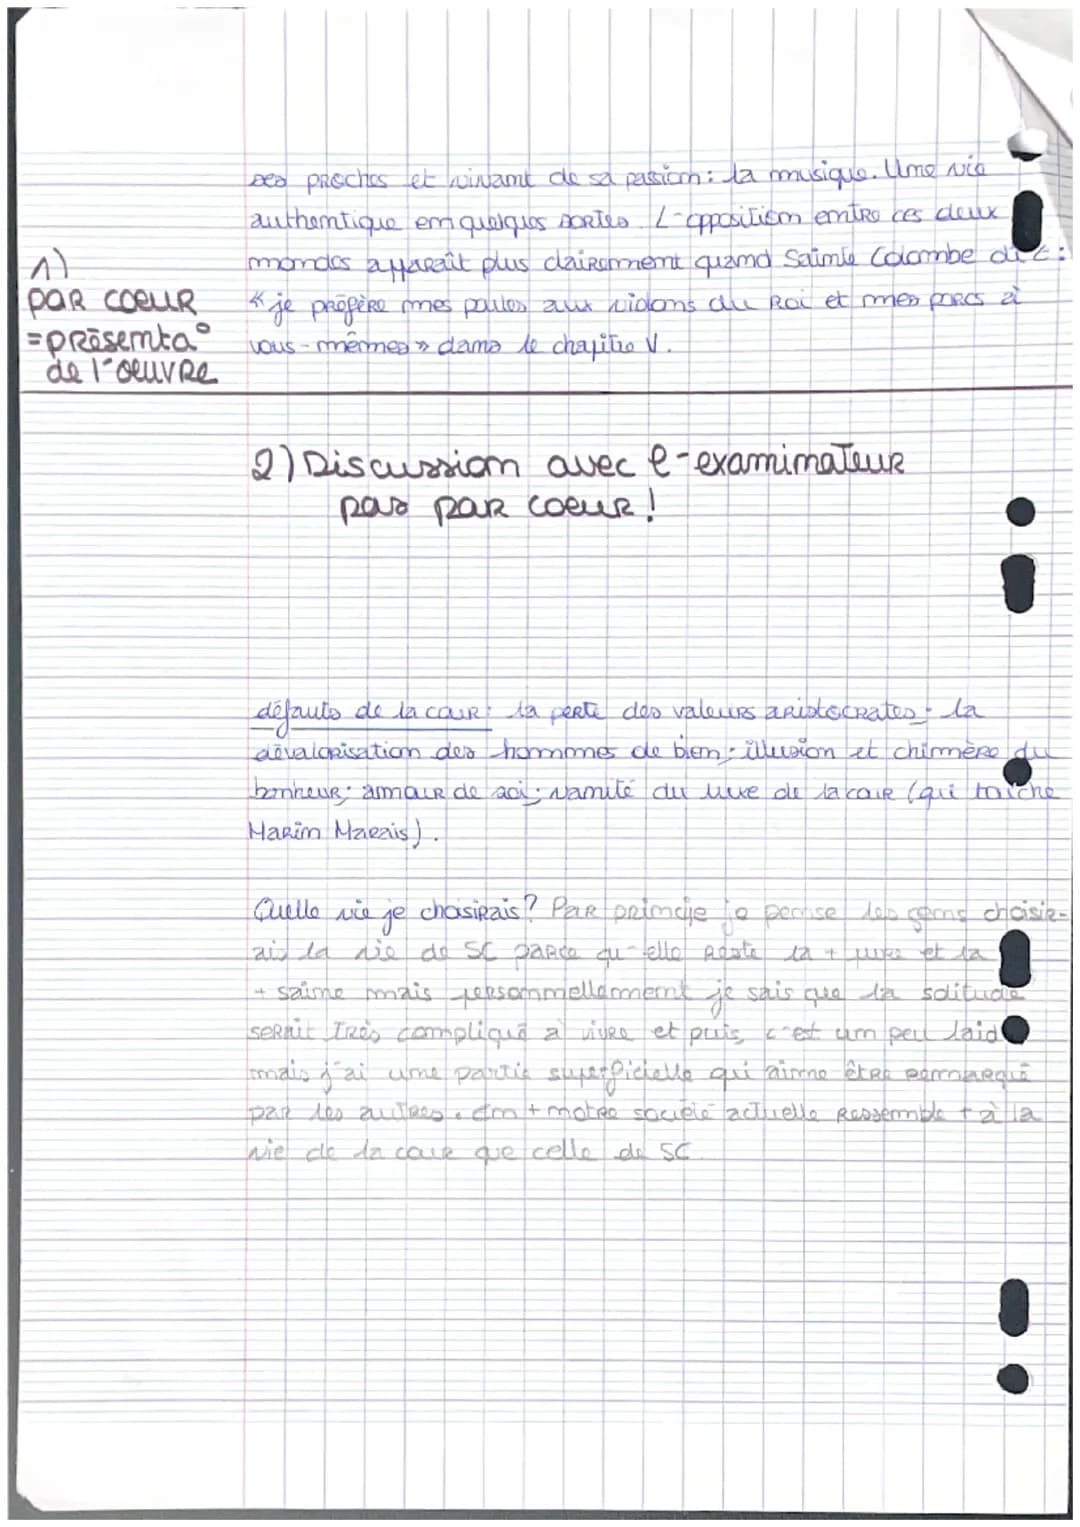 ses proches et vivant de sa passion : la musique. Une vie
authentique en quelques sortes. L'opposition entre ces deux
mondes apparaît plus clairement quand Sainte Colombe dit :
« je préfère mes poules aux violons du Roi et mes porcs à
vous-mêmes » dans le chapitre V.
1)
par coeur
= présenta°
de l'oeuvre
2) Discussion avec l'examinateur
pas par coeur !
défauts de la cour : la perte des valeurs aristocrates ; la
dévalorisation des hommes de bien ; illusion et chimère du
bonheur ; amour de soi ; vanité du luxe de la cour (qui touche
Marin Marais).
Quelle vie je choisirais ? Par principe je pense les gens choisir-
ais la vie de SC parce qu'elle reste la + pure et la
+ saine mais personnellement je sais que la solitude
serait très compliqué à vivre et puis, c'est un peu laid
mais j'ai une partie superficielle qui aime être remarqué
par les autres. En + notre société actuelle ressemble + à la
vie de la cour que celle de SC